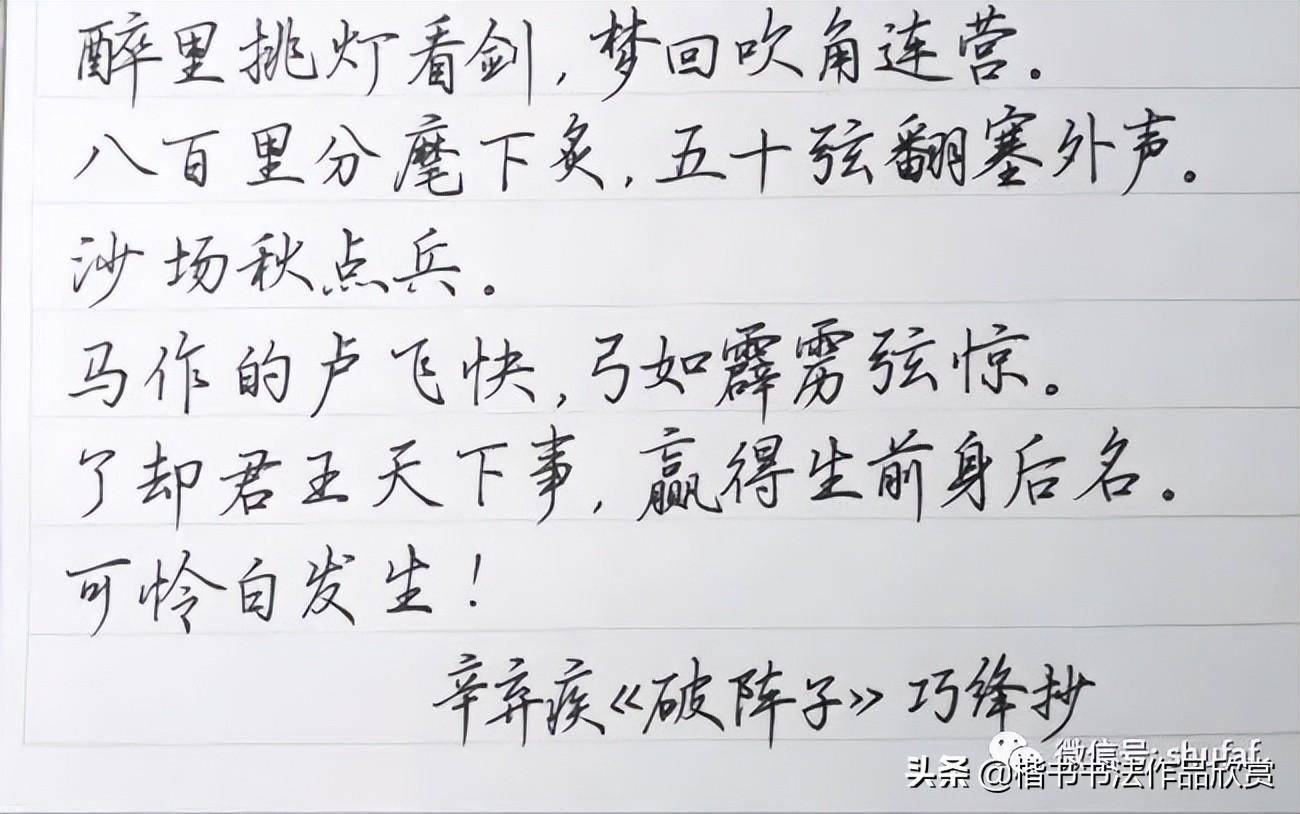 醉里挑灯看剑,梦回吹角连营。
八百里分麾下炙,五十弦翻塞外声。
沙场秋点兵。
马作的卢飞快,弓如霹雳弦惊。
了却君王天下事,赢得生前身后名。
可怜白发生!
辛弃疾《破阵子》巧绛抄
微信号: shufaf
头条 @楷书书法作品欣赏